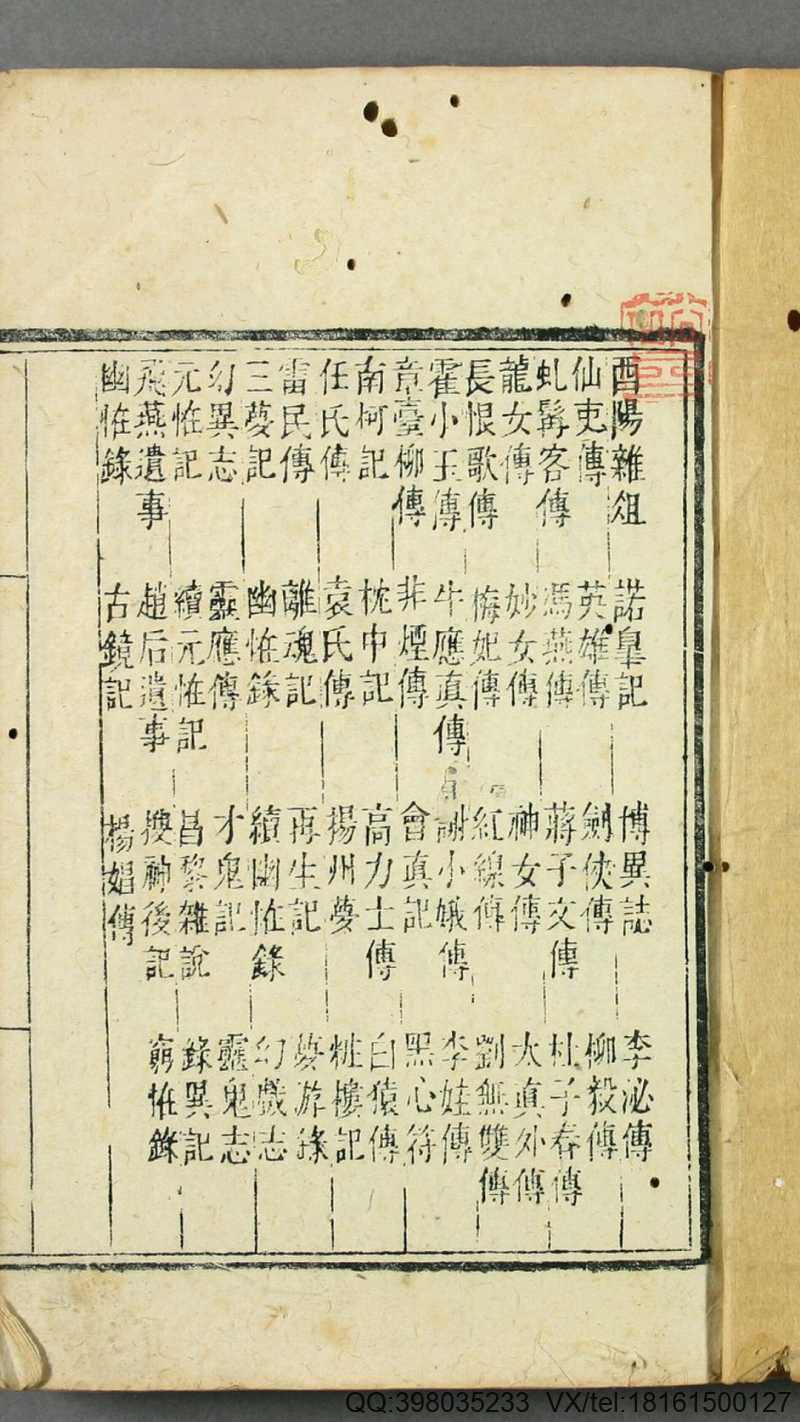 酉陽雜俎 諾皐記 博異誌 李泌傳
仙吏傳 英雄傳 劍俠傳 柳毅傳
虬髯客傳 馮燕傳 蔣子文傳 杜子春傳
龍女傳 妙女傳 神女傳 太真外傳
長恨歌傳 梅妃傳 紅線傳 劉無雙傳
霍小玉傳 牛應真傳 謝小娥傳 李娃傳
章臺柳傳 非煙傳 會真記 黑心符
南柯記 枕中記 高力士傳 白猿傳
任氏傳 袁氏傳 揚州夢 粧樓記
雷民傳 離魂記 再生記 夢游錄
三夢記 幽恠錄 續幽恠錄 幻戲志
幻異志 靈應傳 才鬼記 靈鬼志
元恠記 續元恠記 昌黎雜說 錄異記
飛燕遺事 趙后遺事 搜神後記 窮恠錄
幽恠錄 古鏡記 楊娼傳
QQ:398035233 VX/tel:18161500127